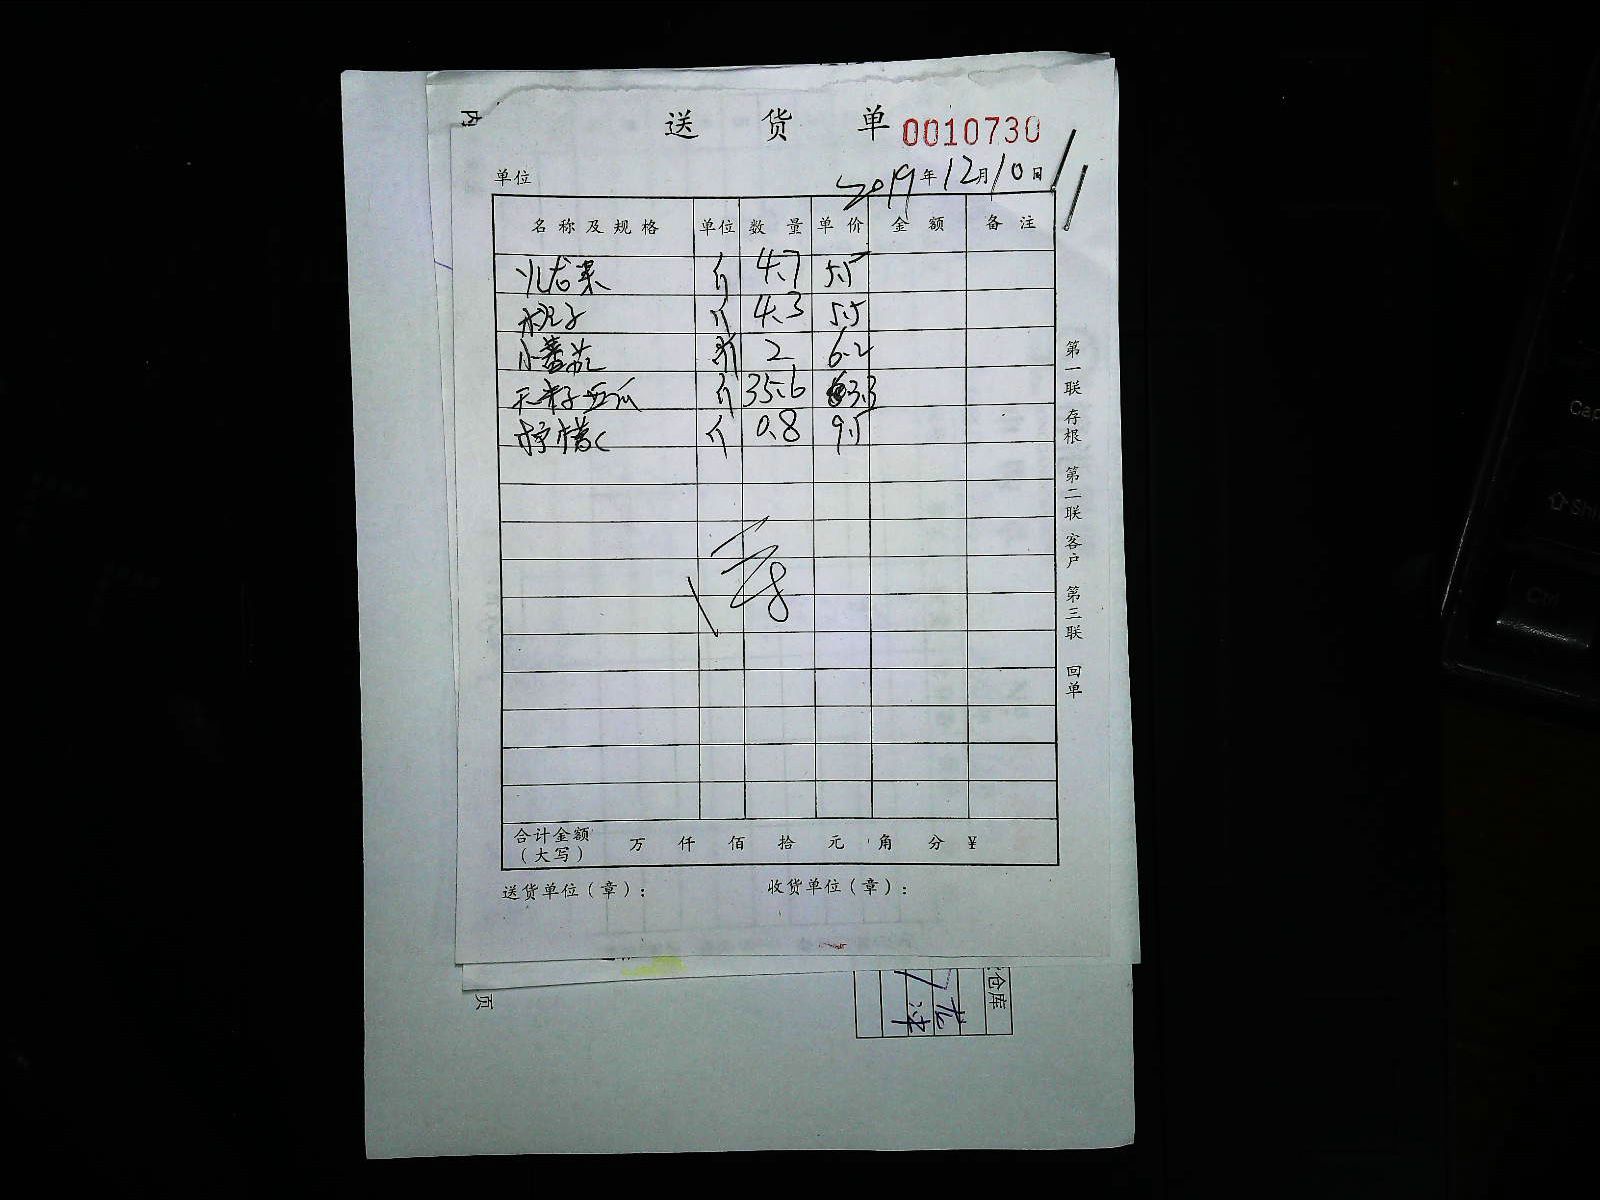 送 货 单 0010730
单位 2019年12月10日
名称及规格 单位 数量 单价 金额 备注
火龙果 斤 4.7 5.5
桃子 斤 4.3 5.5
小蕃茄 斤 2 6.2
无籽西瓜 斤 35.6 3.3
柠檬 斤 0.8 9.5
合计金额(大写) 万 仟 佰 拾 元 角 分 ¥
送货单位(章): 收货单位(章):
第一联 存根 第二联 客户 第三联 回单
仓库
页